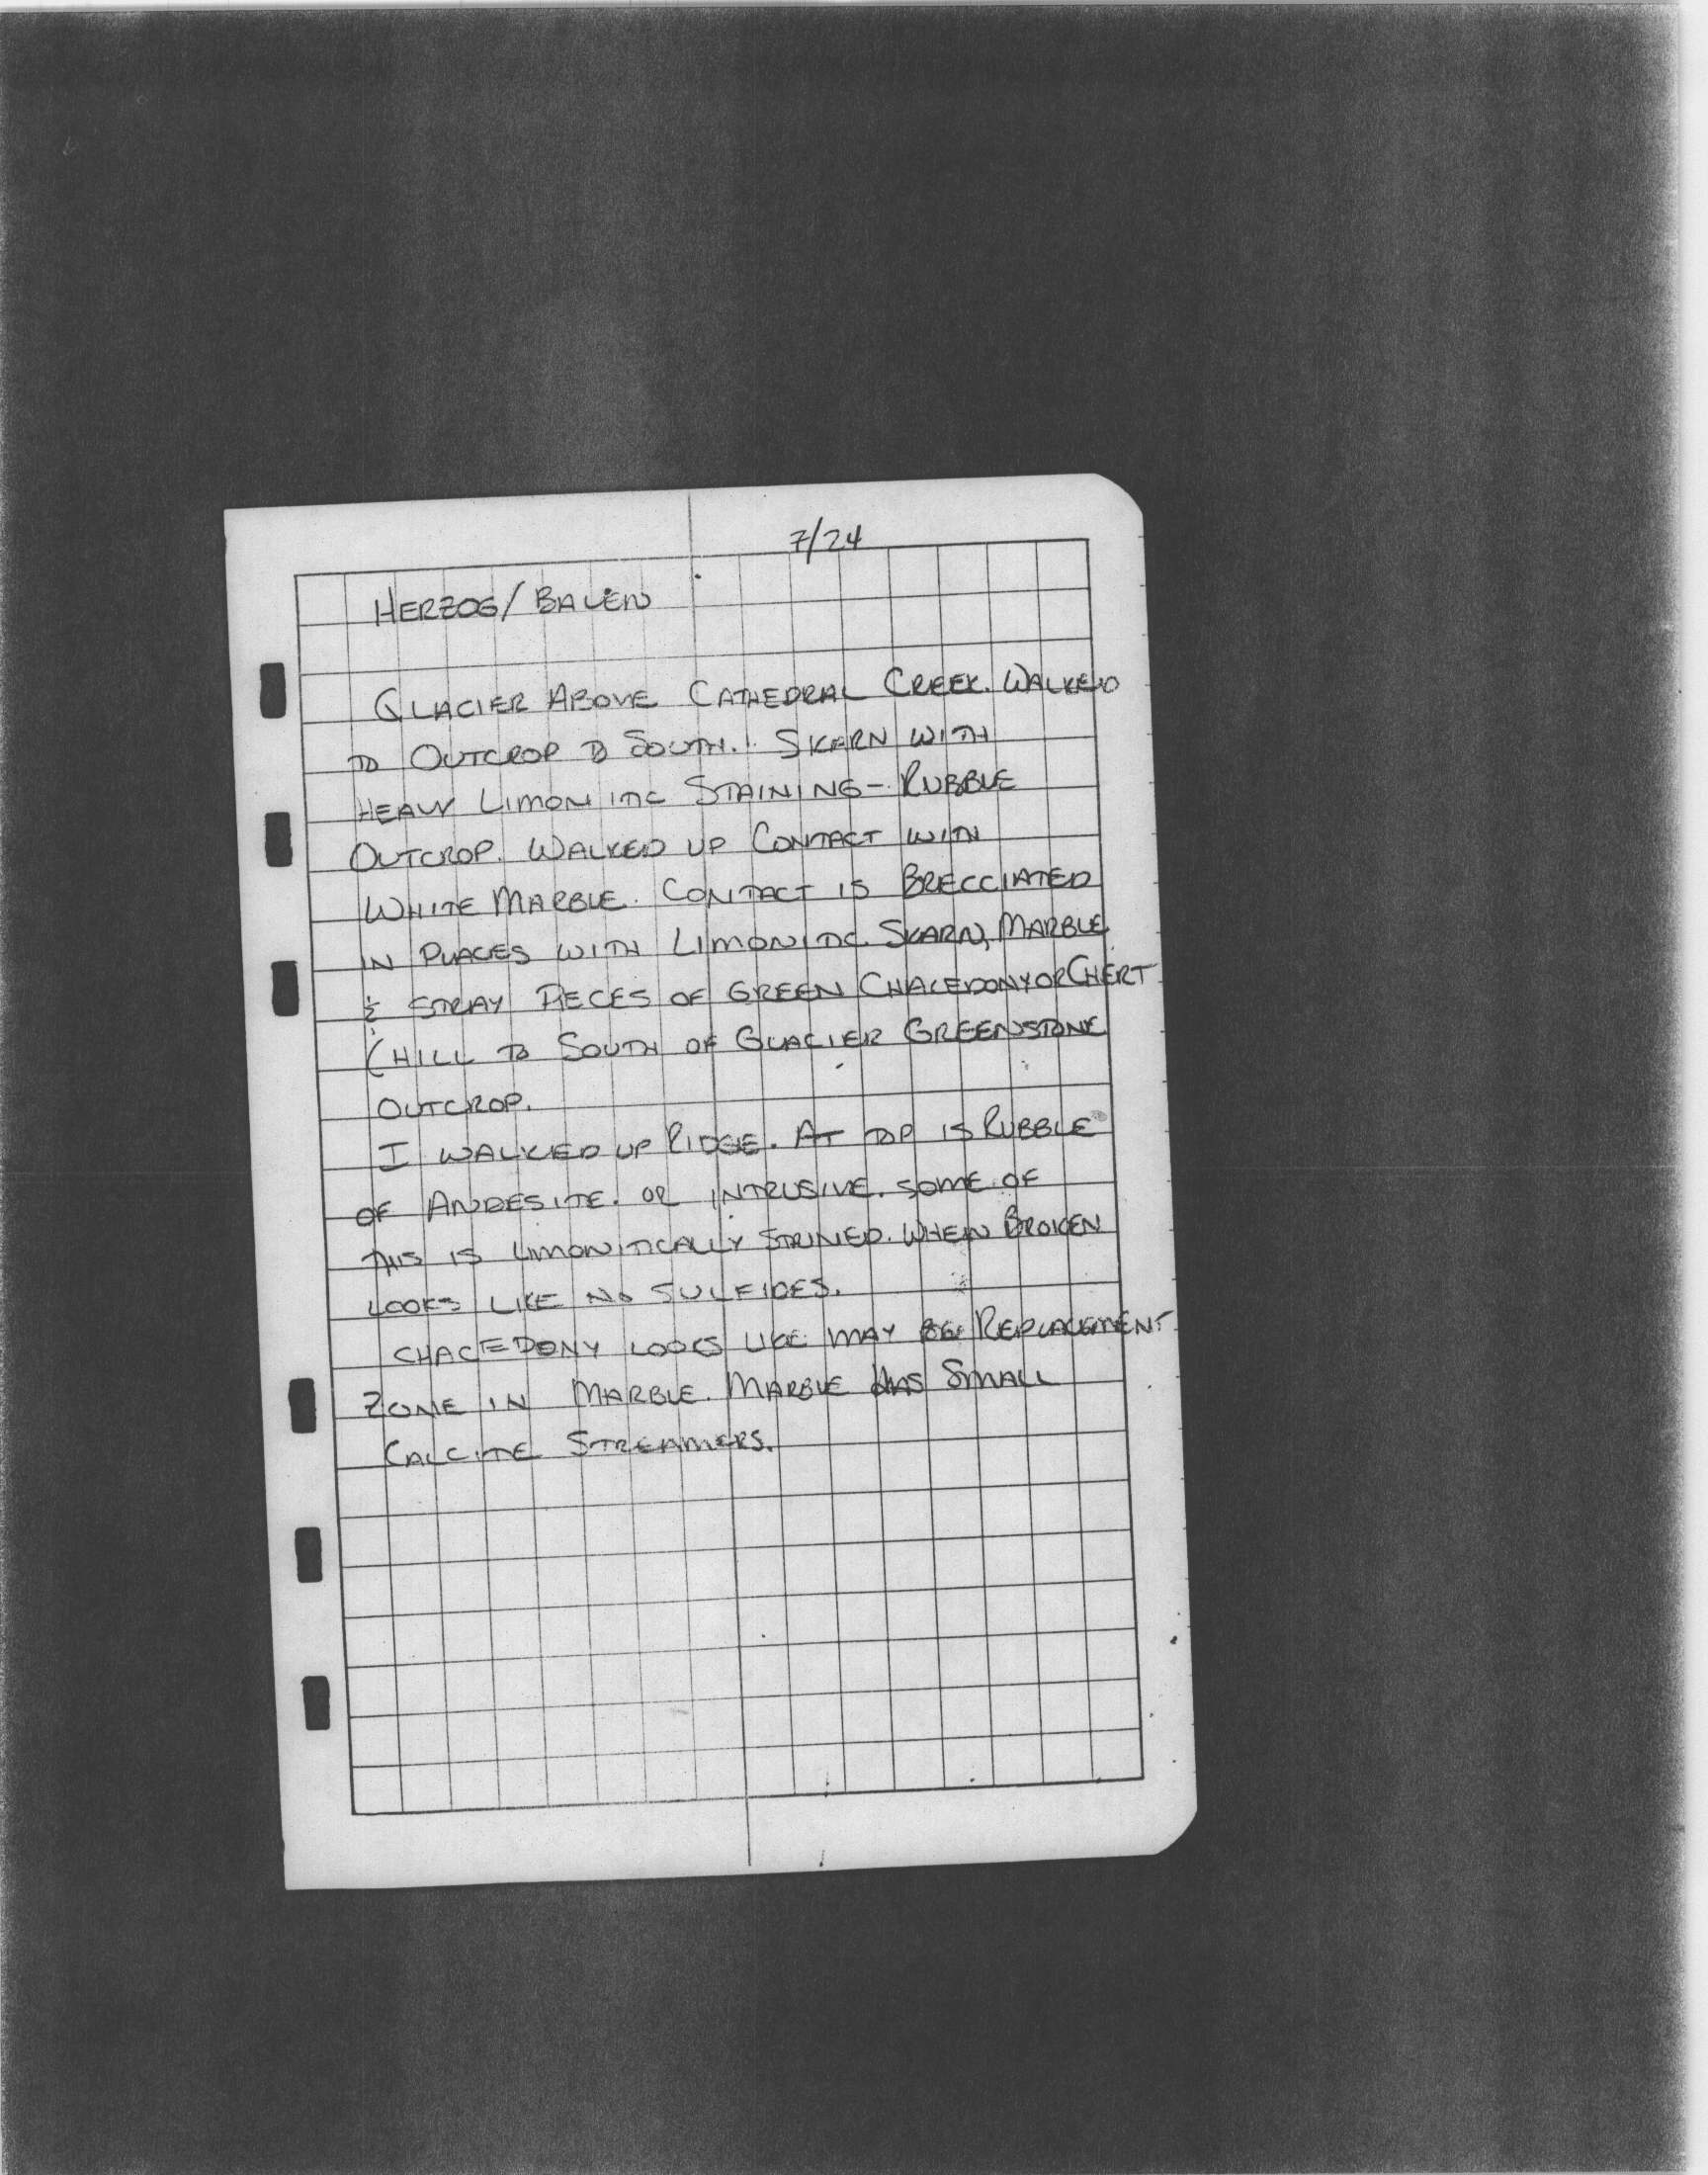 7/24
HERZOG/ BALEN
GLACIER ABOVE CATHEDRAL CREEK. WALKED
TO OUTCROP TO SOUTH. SKARN WITH
HEAVY LIMONITIC STAINING - RUBBLE
OUTCROP. WALKED UP CONTACT WITH
WHITE MARBLE. CONTACT IS BRECCIATED
IN PLACES WITH LIMONITIC SKARN, MARBLE
& STRAY PIECES OF GREEN CHALCEDONY OR CHERT
(HILL TO SOUTH OF GLACIER GREENSTONE
OUTCROP.
I WALKED UP RIDGE. AT TOP IS RUBBLE
OF ANDESITE. OR INTRUSIVE. SOME OF
THIS IS LIMONITICALLY STAINED. WHEN BROKEN
LOOKS LIKE NO SULFIDES.
CHACEDONY LOOKS LIKE MAY BE REPLACEMENT
ZONE IN MARBLE. MARBLE HAS SMALL
CALCITE STREAMERS.